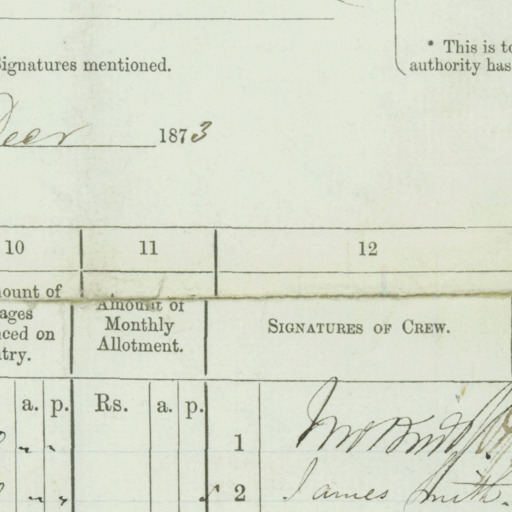 * This is to
Signatures mentioned.
authority has
Decr 1873
10 11 12
mount of
ages
nced on
try.
Amount of
Monthly
Allotment.
SIGNATURES OF CREW.
a. p. Rs. a. p.
1
2 James Smith.